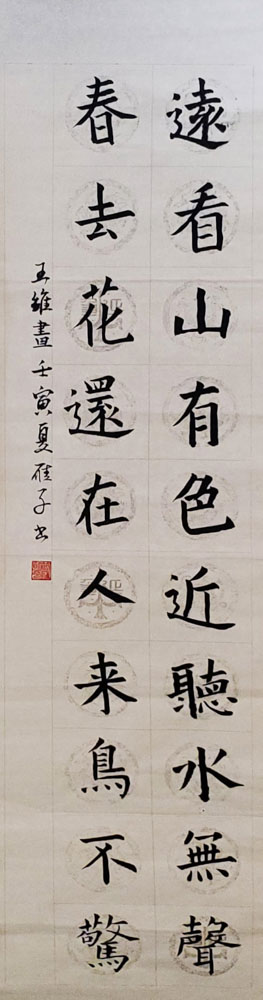 遠看山有色近聽水無聲
春去花還在人来鳥不驚
王維畫壬寅夏雁子书